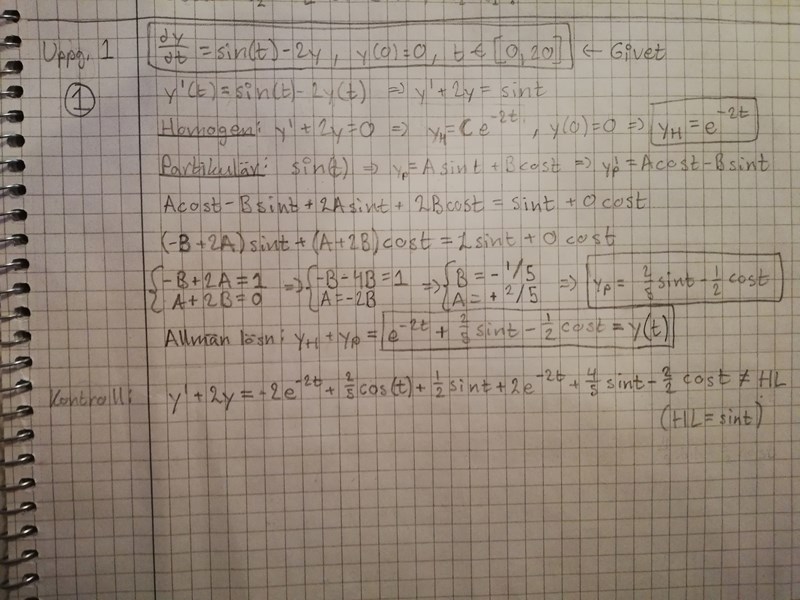 Uppg. 1 dy/dt = sin(t) - 2y , y(0)=0, t ∈ [0,20] ← Givet
① y'(t) = sin(t) - 2y(t) ⇒ y' + 2y = sint
Homogen: y' + 2y = 0 ⇒ y_H = Ce^{-2t} , y(0)=0 ⇒ y_H = e^{-2t}
Partikulär: sin(t) ⇒ y_p = A sint + B cost ⇒ y_p' = A cost - B sint
A cost - B sint + 2A sint + 2B cost = sint + 0 cost
(-B + 2A) sint + (A + 2B) cost = 1 sint + 0 cost
{-B + 2A = 1 ⇒ {-B - 4B = 1 ⇒ {B = -1/5 ⇒ y_p = 2/5 sint - 1/2 cost
{A + 2B = 0 {A = -2B {A = +2/5
Allmän lösn: y_H + y_p = e^{-2t} + 2/5 sint - 1/2 cost = y(t)
Kontroll: y' + 2y = -2e^{-2t} + 2/5 cos(t) + 1/2 sint + 2e^{-2t} + 4/5 sint - 2/2 cost ≠ HL
(HL = sint)